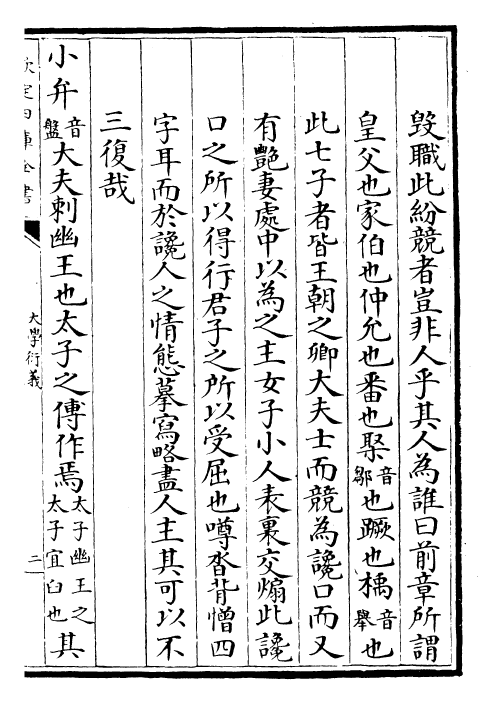 毀職此紛競者豈非人乎其人為誰曰前章所謂
皇父也家伯也仲允也番也棸音鄒也蹶也楀音舉也
此七子者皆王朝之卿大夫士而競為讒口而又
有艷妻處中以為之主女子小人表裏交煽此讒
口之所以得行君子之所以受屈也噂沓背憎四
字耳而於讒人之情態摹寫略盡人主其可以不
三復哉
小弁音盤大夫刺幽王也太子之傅作焉太子幽王之太子宜臼也其
欽定四庫全書
大學衍義
二